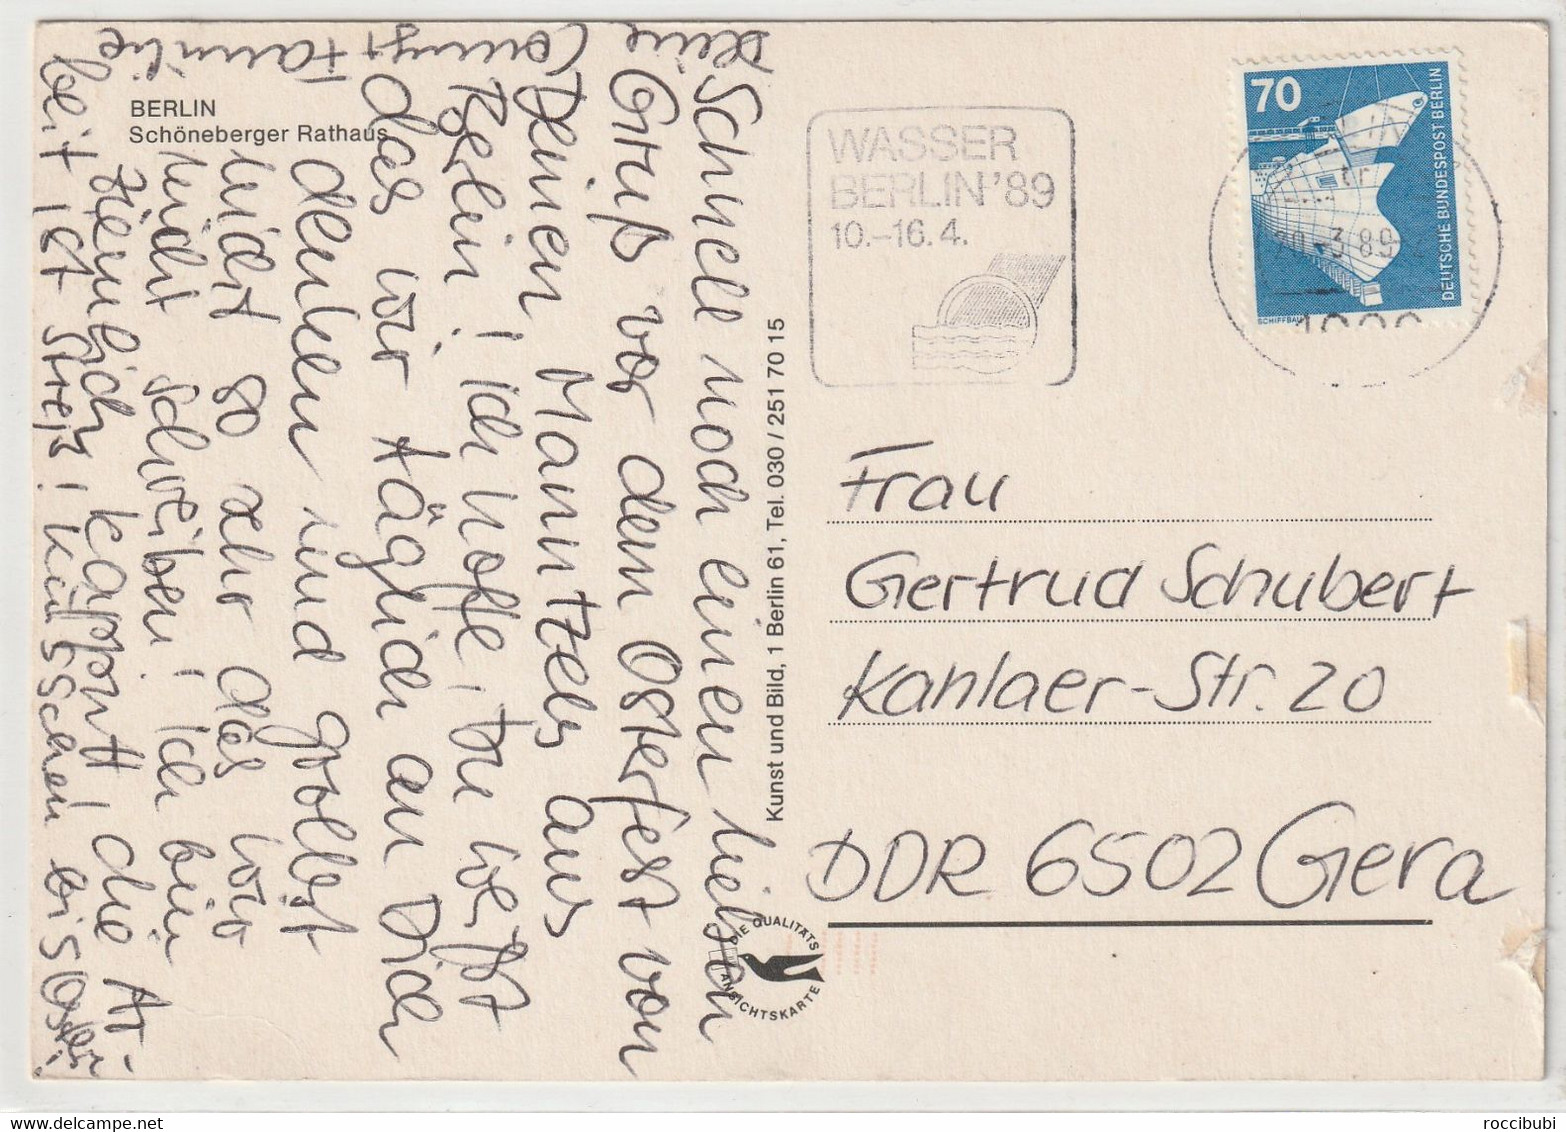 BERLIN
Schöneberger Rathaus
Schnell noch einen lieben
Gruß vor dem Osterfest von
Deinen Manntzels aus
Berlin! ich hoffe, Du weißt
das wir täglich an Dich
denken und grollst
nicht so sehr das wir
nicht schreiben! ich bin
ziemlich kapputt, die Ar-
beit ist streß! Küsschen bis
Deine
Familie
Kunst und Bild, 1 Berlin 61, Tel. 030 / 251 70 15
DIE QUALITÄTS
ANSICHTSKARTE
WASSER
BERLIN '89
10.–16.4.
70
DEUTSCHE BUNDESPOST BERLIN
SCHIFFBAU
20.-3.89
1000
Frau
Gertrud Schubert
Kahlaer-Str. 20
DDR 6502 Gera
roccibubi
www.delcampe.net